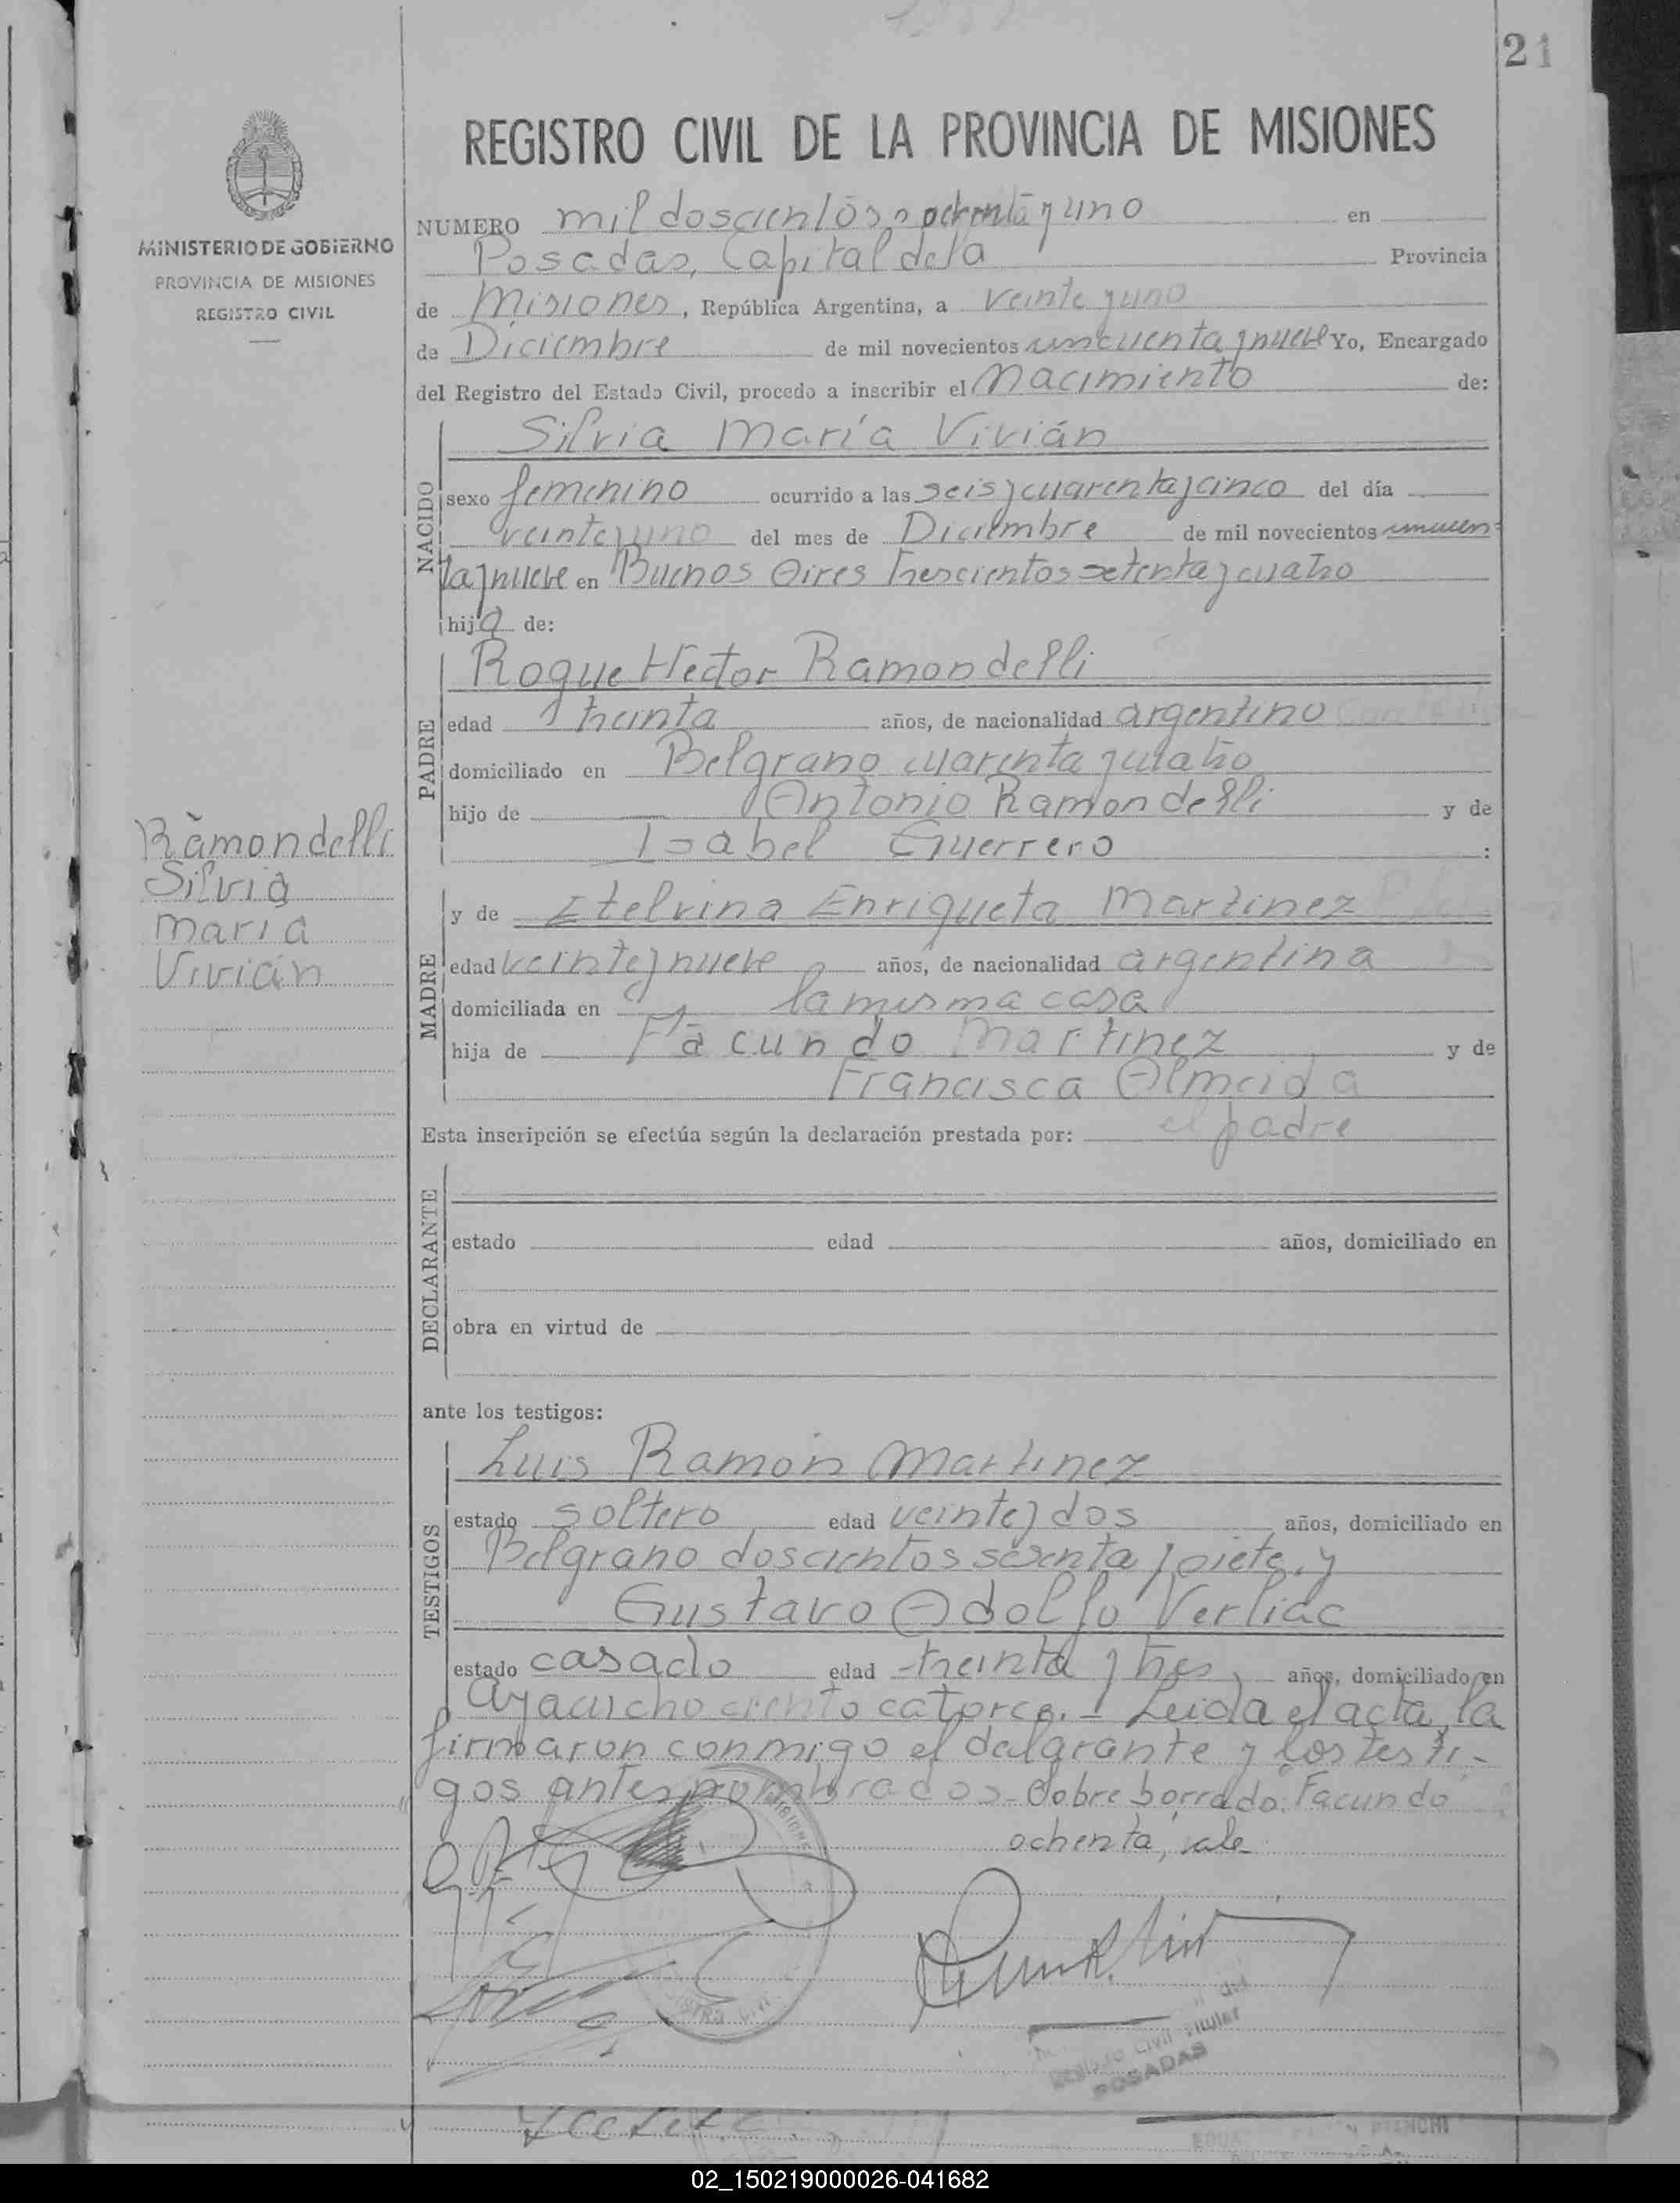 21
REGISTRO CIVIL DE LA PROVINCIA DE MISIONES
MINISTERIO DE GOBIERNO
PROVINCIA DE MISIONES
REGISTRO CIVIL
NUMERO mil doscientos ochenta y uno en
Posadas, Capital de la Provincia
de Misiones, República Argentina, a veinte y uno
de Diciembre de mil novecientos cincuenta y nueve Yo, Encargado
del Registro del Estado Civil, procedo a inscribir el Nacimiento de:
NACIDO
Silvia María Vivián
sexo femenino ocurrido a las seis y cuarenta y cinco del día
veinte y uno del mes de Diciembre de mil novecientos cincuen-
ta y nueve en Buenos Aires trescientos setenta y cuatro
hija de:
PADRE
Roque Hector Ramondelli
edad treinta años, de nacionalidad argentino
domiciliado en Belgrano cuarenta y cuatro
hijo de Antonio Ramondelli y de
Isabel Guerrero :
Ramondelli
Silvia
María
Vivián
MADRE
y de Etelvina Enriqueta Martinez
edad veinte y nueve años, de nacionalidad argentina
domiciliada en la misma casa
hija de Facundo Martinez y de
Francisca Almeida
Esta inscripción se efectúa según la declaración prestada por: el padre
DECLARANTE
estado edad años, domiciliado en
obra en virtud de
ante los testigos:
TESTIGOS
Luis Ramón Martinez
estado soltero edad veinte y dos años, domiciliado en
Belgrano doscientos sesenta y siete, y
Gustavo Adolfo Verliac
estado casado edad treinta y tres, años, domiciliado en
Ayacucho ciento catorce. - Leida el acta, la
firmaron conmigo el dclarante y los testi-
gos antes nombrados - Sobre borrado: Facundo
ochenta, vale
Registro Civil
POSADAS
02_150219000026-041682